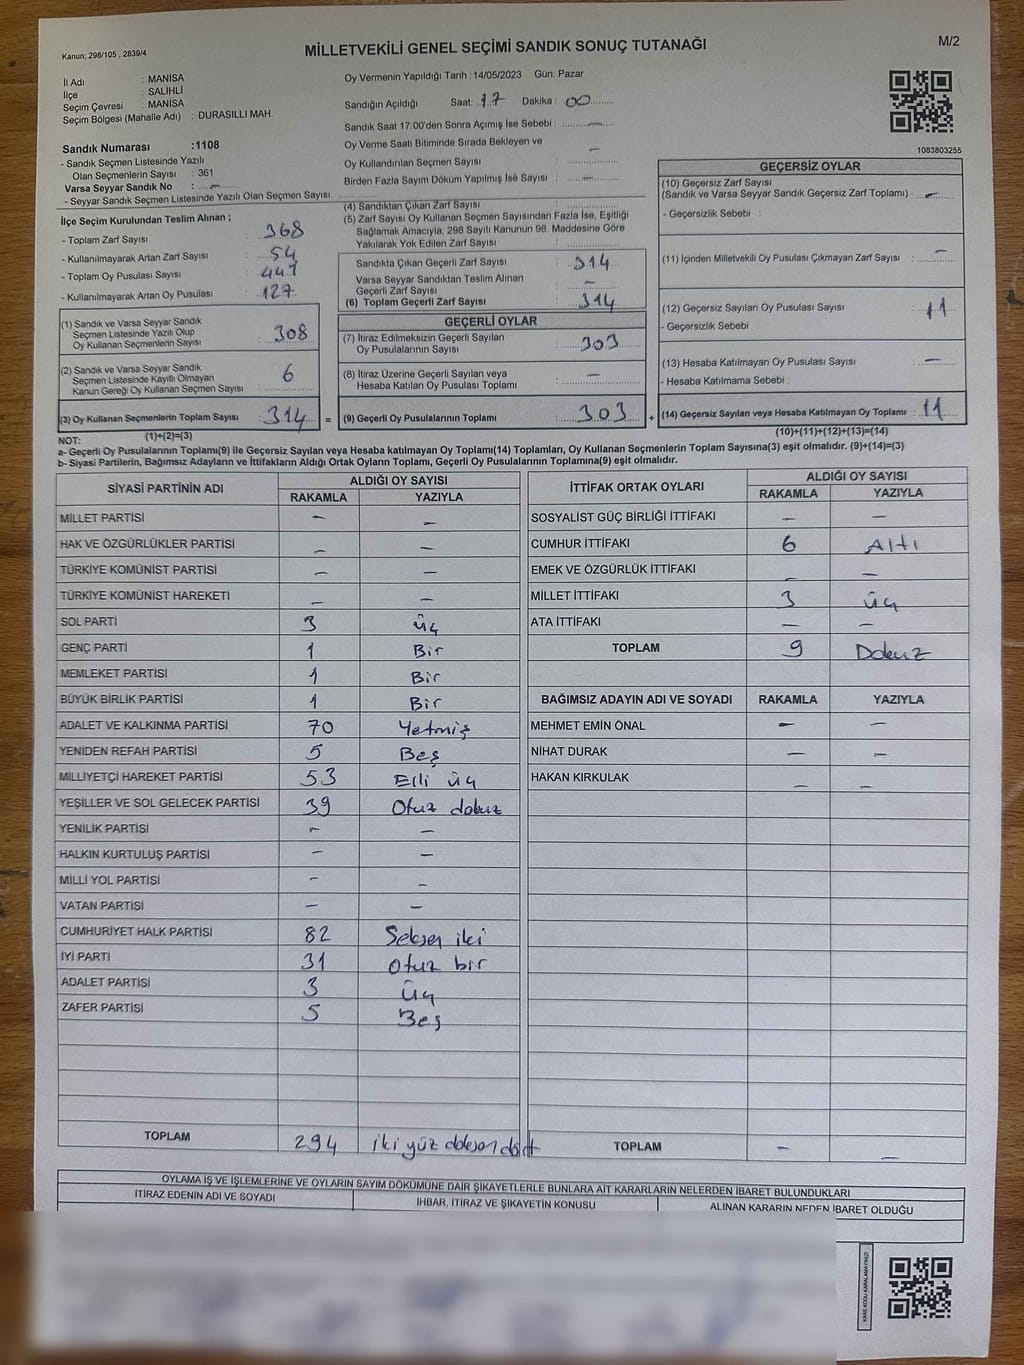 Kanun; 298/105 , 2839/4
MİLLETVEKİLİ GENEL SEÇİMİ SANDIK SONUÇ TUTANAĞI
M/2
İl Adı : MANİSA
İlçe : SALİHLİ
Seçim Çevresi : MANİSA
Seçim Bölgesi (Mahalle Adı) : DURASILLI MAH.
Sandık Numarası :1108
- Sandık Seçmen Listesinde Yazılı
Olan Seçmenlerin Sayısı : 361
Varsa Seyyar Sandık No : –
- Seyyar Sandık Seçmen Listesinde Yazılı Olan Seçmen Sayısı:
Oy Vermenin Yapıldığı Tarih :14/05/2023 Gün: Pazar
Sandığın Açıldığı Saat: 17 Dakika : 00
Sandık Saat 17:00'den Sonra Açımış İse Sebebi : –
Oy Verme Saati Bitiminde Sırada Bekleyen ve
Oy Kullandırılan Seçmen Sayısı : –
Birden Fazla Sayım Döküm Yapılmış İse Sayısı : –
1083803255
İlçe Seçim Kurulundan Teslim Alınan ;
- Toplam Zarf Sayısı : 368
- Kullanılmayarak Artan Zarf Sayısı : 54
- Toplam Oy Pusulası Sayısı : 441
- Kullanılmayarak Artan Oy Pusulası : 127
(1) Sandık ve Varsa Seyyar Sandık
Seçmen Listesinde Yazılı Olup
Oy Kullanan Seçmenlerin Sayısı : 308
(2) Sandık ve Varsa Seyyar Sandık
Seçmen Listesinde Kayıtlı Olmayan
Kanun Gereği Oy Kullanan Seçmen Sayısı : 6
(3) Oy Kullanan Seçmenlerin Toplam Sayısı : 314 =
(1)+(2)=(3)
(4) Sandıktan Çıkan Zarf Sayısı :
(5) Zarf Sayısı Oy Kullanan Seçmen Sayısından Fazla İse, Eşitliği
Sağlamak Amacıyla, 298 Sayılı Kanunun 98. Maddesine Göre
Yakılarak Yok Edilen Zarf Sayısı :
Sandıkta Çıkan Geçerli Zarf Sayısı : 314
Varsa Seyyar Sandıktan Teslim Alınan
Geçerli Zarf Sayısı : –
(6) Toplam Geçerli Zarf Sayısı : 314
GEÇERLİ OYLAR
(7) İtiraz Edilmeksizin Geçerli Sayılan
Oy Pusulalarının Sayısı : 303
(8) İtiraz Üzerine Geçerli Sayılan veya
Hesaba Katılan Oy Pusulası Toplamı : –
(9) Geçerli Oy Pusulalarının Toplamı : 303 +
GEÇERSİZ OYLAR
(10) Geçersiz Zarf Sayısı
(Sandık ve Varsa Seyyar Sandık Geçersiz Zarf Toplamı) : –
- Geçersizlik Sebebi :
(11) İçinden Milletvekili Oy Pusulası Çıkmayan Zarf Sayısı : –
(12) Geçersiz Sayılan Oy Pusulası Sayısı : 11
- Geçersizlik Sebebi :
(13) Hesaba Katılmayan Oy Pusulası Sayısı : –
- Hesaba Katılmama Sebebi :
(14) Geçersiz Sayılan veya Hesaba Katılmayan Oy Toplamı : 11
(10)+(11)+(12)+(13)=(14)
NOT:
a- Geçerli Oy Pusulalarının Toplamı(9) ile Geçersiz Sayılan veya Hesaba katılmayan Oy Toplamı(14) Toplamları, Oy Kullanan Seçmenlerin Toplam Sayısına(3) eşit olmalıdır. (9)+(14)=(3)
b- Siyasi Partilerin, Bağımsız Adayların ve İttifakların Aldığı Ortak Oyların Toplamı, Geçerli Oy Pusulalarının Toplamına(9) eşit olmalıdır.
SİYASİ PARTİNİN ADI ALDIĞI OY SAYISI
RAKAMLA YAZIYLA
MİLLET PARTİSİ – –
HAK VE ÖZGÜRLÜKLER PARTİSİ – –
TÜRKİYE KOMÜNİST PARTİSİ – –
TÜRKİYE KOMÜNİST HAREKETİ – –
SOL PARTİ 3 üç
GENÇ PARTİ 1 Bir
MEMLEKET PARTİSİ 1 Bir
BÜYÜK BİRLİK PARTİSİ 1 Bir
ADALET VE KALKINMA PARTİSİ 70 Yetmiş
YENİDEN REFAH PARTİSİ 5 Beş
MİLLİYETÇİ HAREKET PARTİSİ 53 Elli üç
YEŞİLLER VE SOL GELECEK PARTİSİ 39 Otuz dokuz
YENİLİK PARTİSİ – –
HALKIN KURTULUŞ PARTİSİ – –
MİLLİ YOL PARTİSİ – –
VATAN PARTİSİ – –
CUMHURİYET HALK PARTİSİ 82 Seksen iki
İYİ PARTİ 31 Otuz bir
ADALET PARTİSİ 3 üç
ZAFER PARTİSİ 5 Beş
TOPLAM 294 iki yüz doksan dört
İTTİFAK ORTAK OYLARI ALDIĞI OY SAYISI
RAKAMLA YAZIYLA
SOSYALİST GÜÇ BİRLİĞİ İTTİFAKI – –
CUMHUR İTTİFAKI 6 Altı
EMEK VE ÖZGÜRLÜK İTTİFAKI – –
MİLLET İTTİFAKI 3 üç
ATA İTTİFAKI – –
TOPLAM 9 Dokuz
BAĞIMSIZ ADAYIN ADI VE SOYADI RAKAMLA YAZIYLA
MEHMET EMİN ÖNAL – –
NİHAT DURAK – –
HAKAN KIRKULAK – –
TOPLAM – –
OYLAMA İŞ VE İŞLEMLERİNE VE OYLARIN SAYIM DÖKÜMÜNE DAİR ŞİKAYETLERLE BUNLARA AİT KARARLARIN NELERDEN İBARET BULUNDUKLARI
İTİRAZ EDENİN ADI VE SOYADI İHBAR, İTİRAZ VE ŞİKAYETİN KONUSU ALINAN KARARIN NEDEN İBARET OLDUĞU
KARE KODU KARALAMAYINIZ!